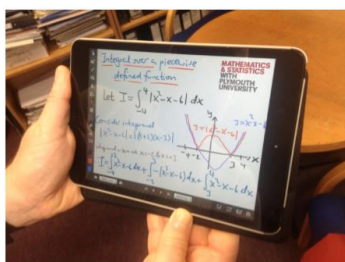 Integral over a piecewise
defined function
MATHEMATICS
& STATISTICS
WITH
PLYMOUTH
UNIVERSITY
let I = ∫₋₄⁴ |x²-x-6| dx
y
y=x²-x-6
y=|x²-x-6|
Consider integrand
|x²-x-6| = |(x+2)(x-3)|
-4 -2 3 4 x
I = ∫₋₄⁻² x²-x-6 dx + ∫₋₂³ -(x²-x-6) dx + ∫₃⁴ x²-x-6 dx